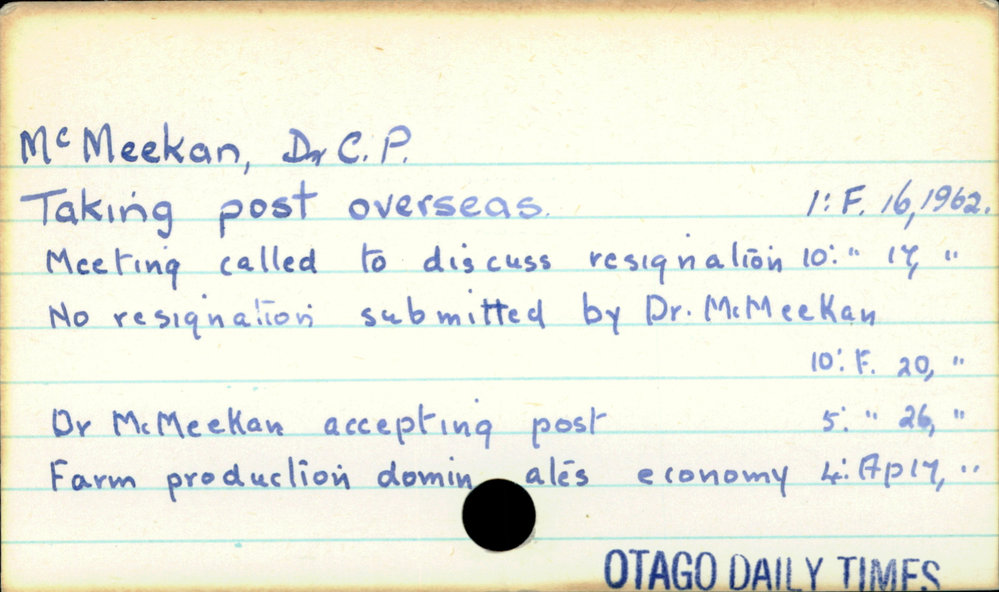 McMeekan, Dr C.P.
Taking post overseas. 1: F. 16, 1962.
Meeting called to discuss resignation 10: " 17, "
No resignation submitted by Dr. McMeekan
10: F. 20, "
Dr McMeekan accepting post 5: " 26, "
Farm production domin ates economy 4: Ap 17, "
OTAGO DAILY TIMES